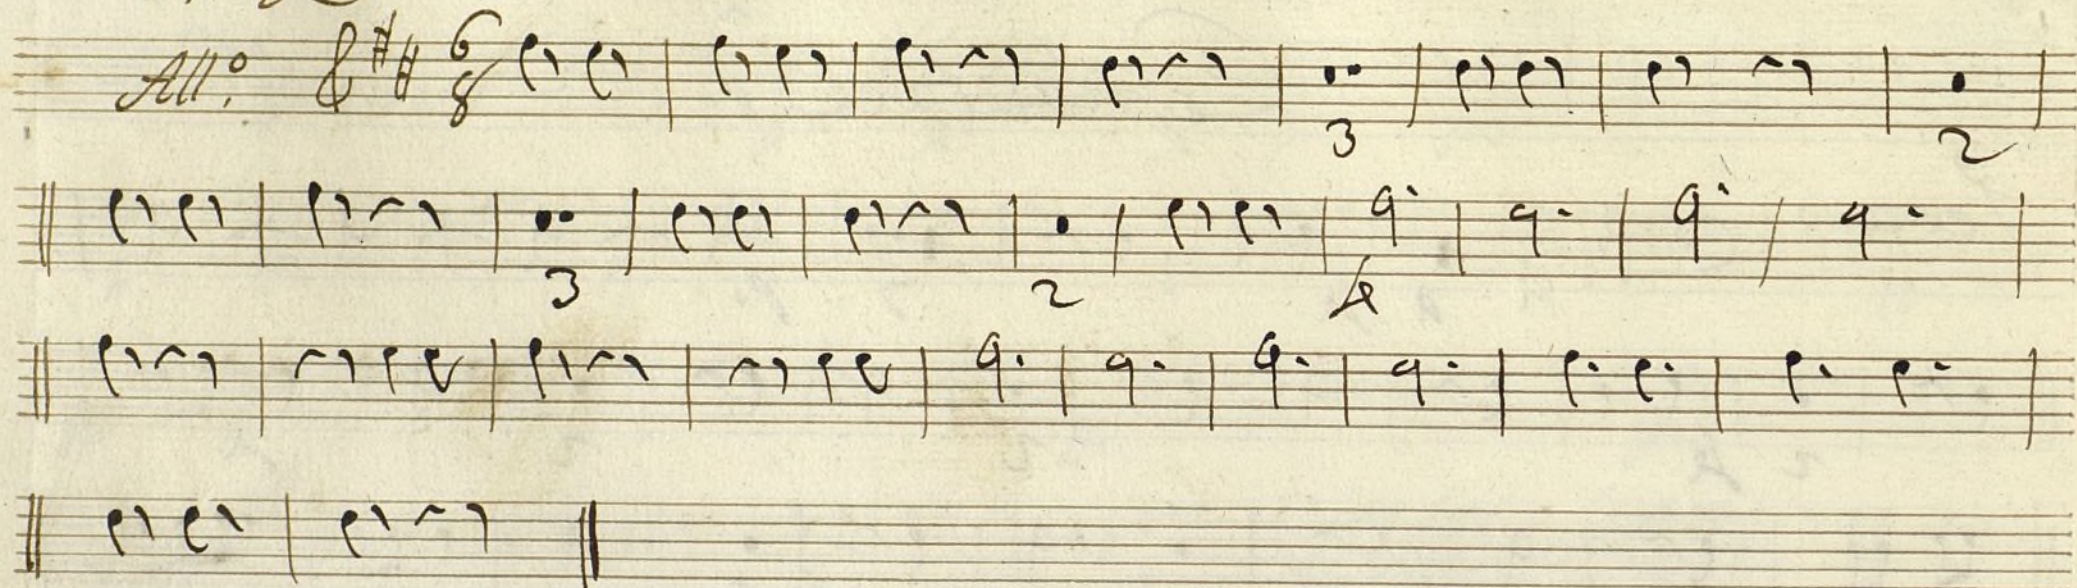 All.o 6/8 3 2
3 2 4